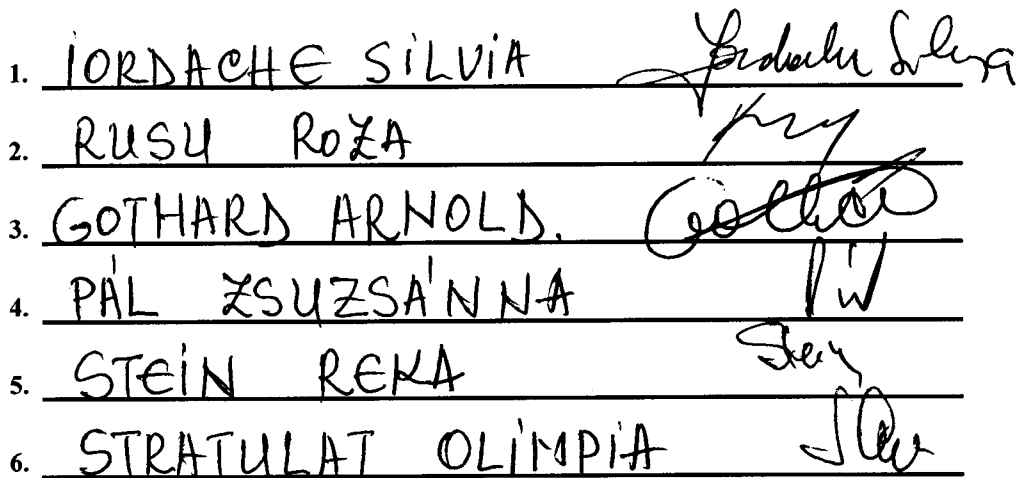 1. IORDACHE SILVIA Iordache Silvia
2. RUSU ROZA
3. GOTHARD ARNOLD.
4. PÁL ZSUZSÁNNA
5. STEIN REKA Stein
6. STRATULAT OLIMPIA